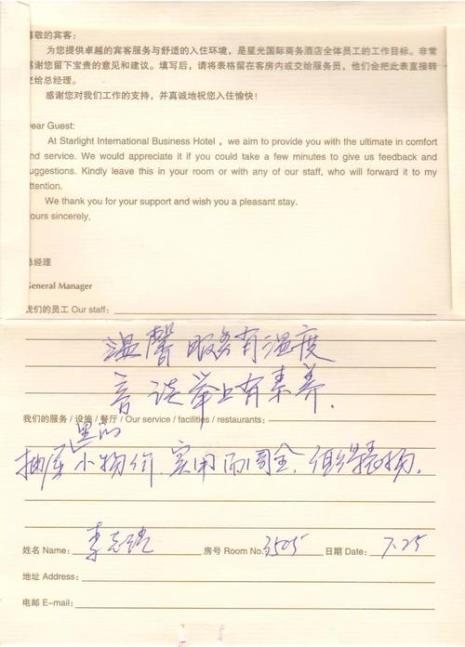 尊敬的宾客:
为您提供卓越的宾客服务与舒适的入住环境,是星光国际商务酒店全体员工的工作目标。非常
感谢您留下宝贵的意见和建议。填写后,请将表格留在客房内或交给服务员,他们会把此表直接转
交给总经理。
感谢您对我们工作的支持,并真诚地祝您入住愉快!
Dear Guest:
At Starlight International Business Hotel , we aim to provide you with the ultimate in comfort
and service. We would appreciate it if you could take a few minutes to give us feedback and
suggestions. Kindly leave this in your room or with any of our staff, who will forward it to my
attention.
We thank you for your support and wish you a pleasant stay.
Yours sincerely,
总经理
General Manager
我们的员工 Our staff:
温馨 服务有温度
言谈举止有素养.
我们的服务 / 设施 / 餐厅 / Our service / facilities / restaurants:
抽屉里的小物件.实用而周全.值得表扬。
姓名 Name: 李 房号 Room No. 3505 日期 Date: 7.25
地址 Address:
电邮 E-mail: